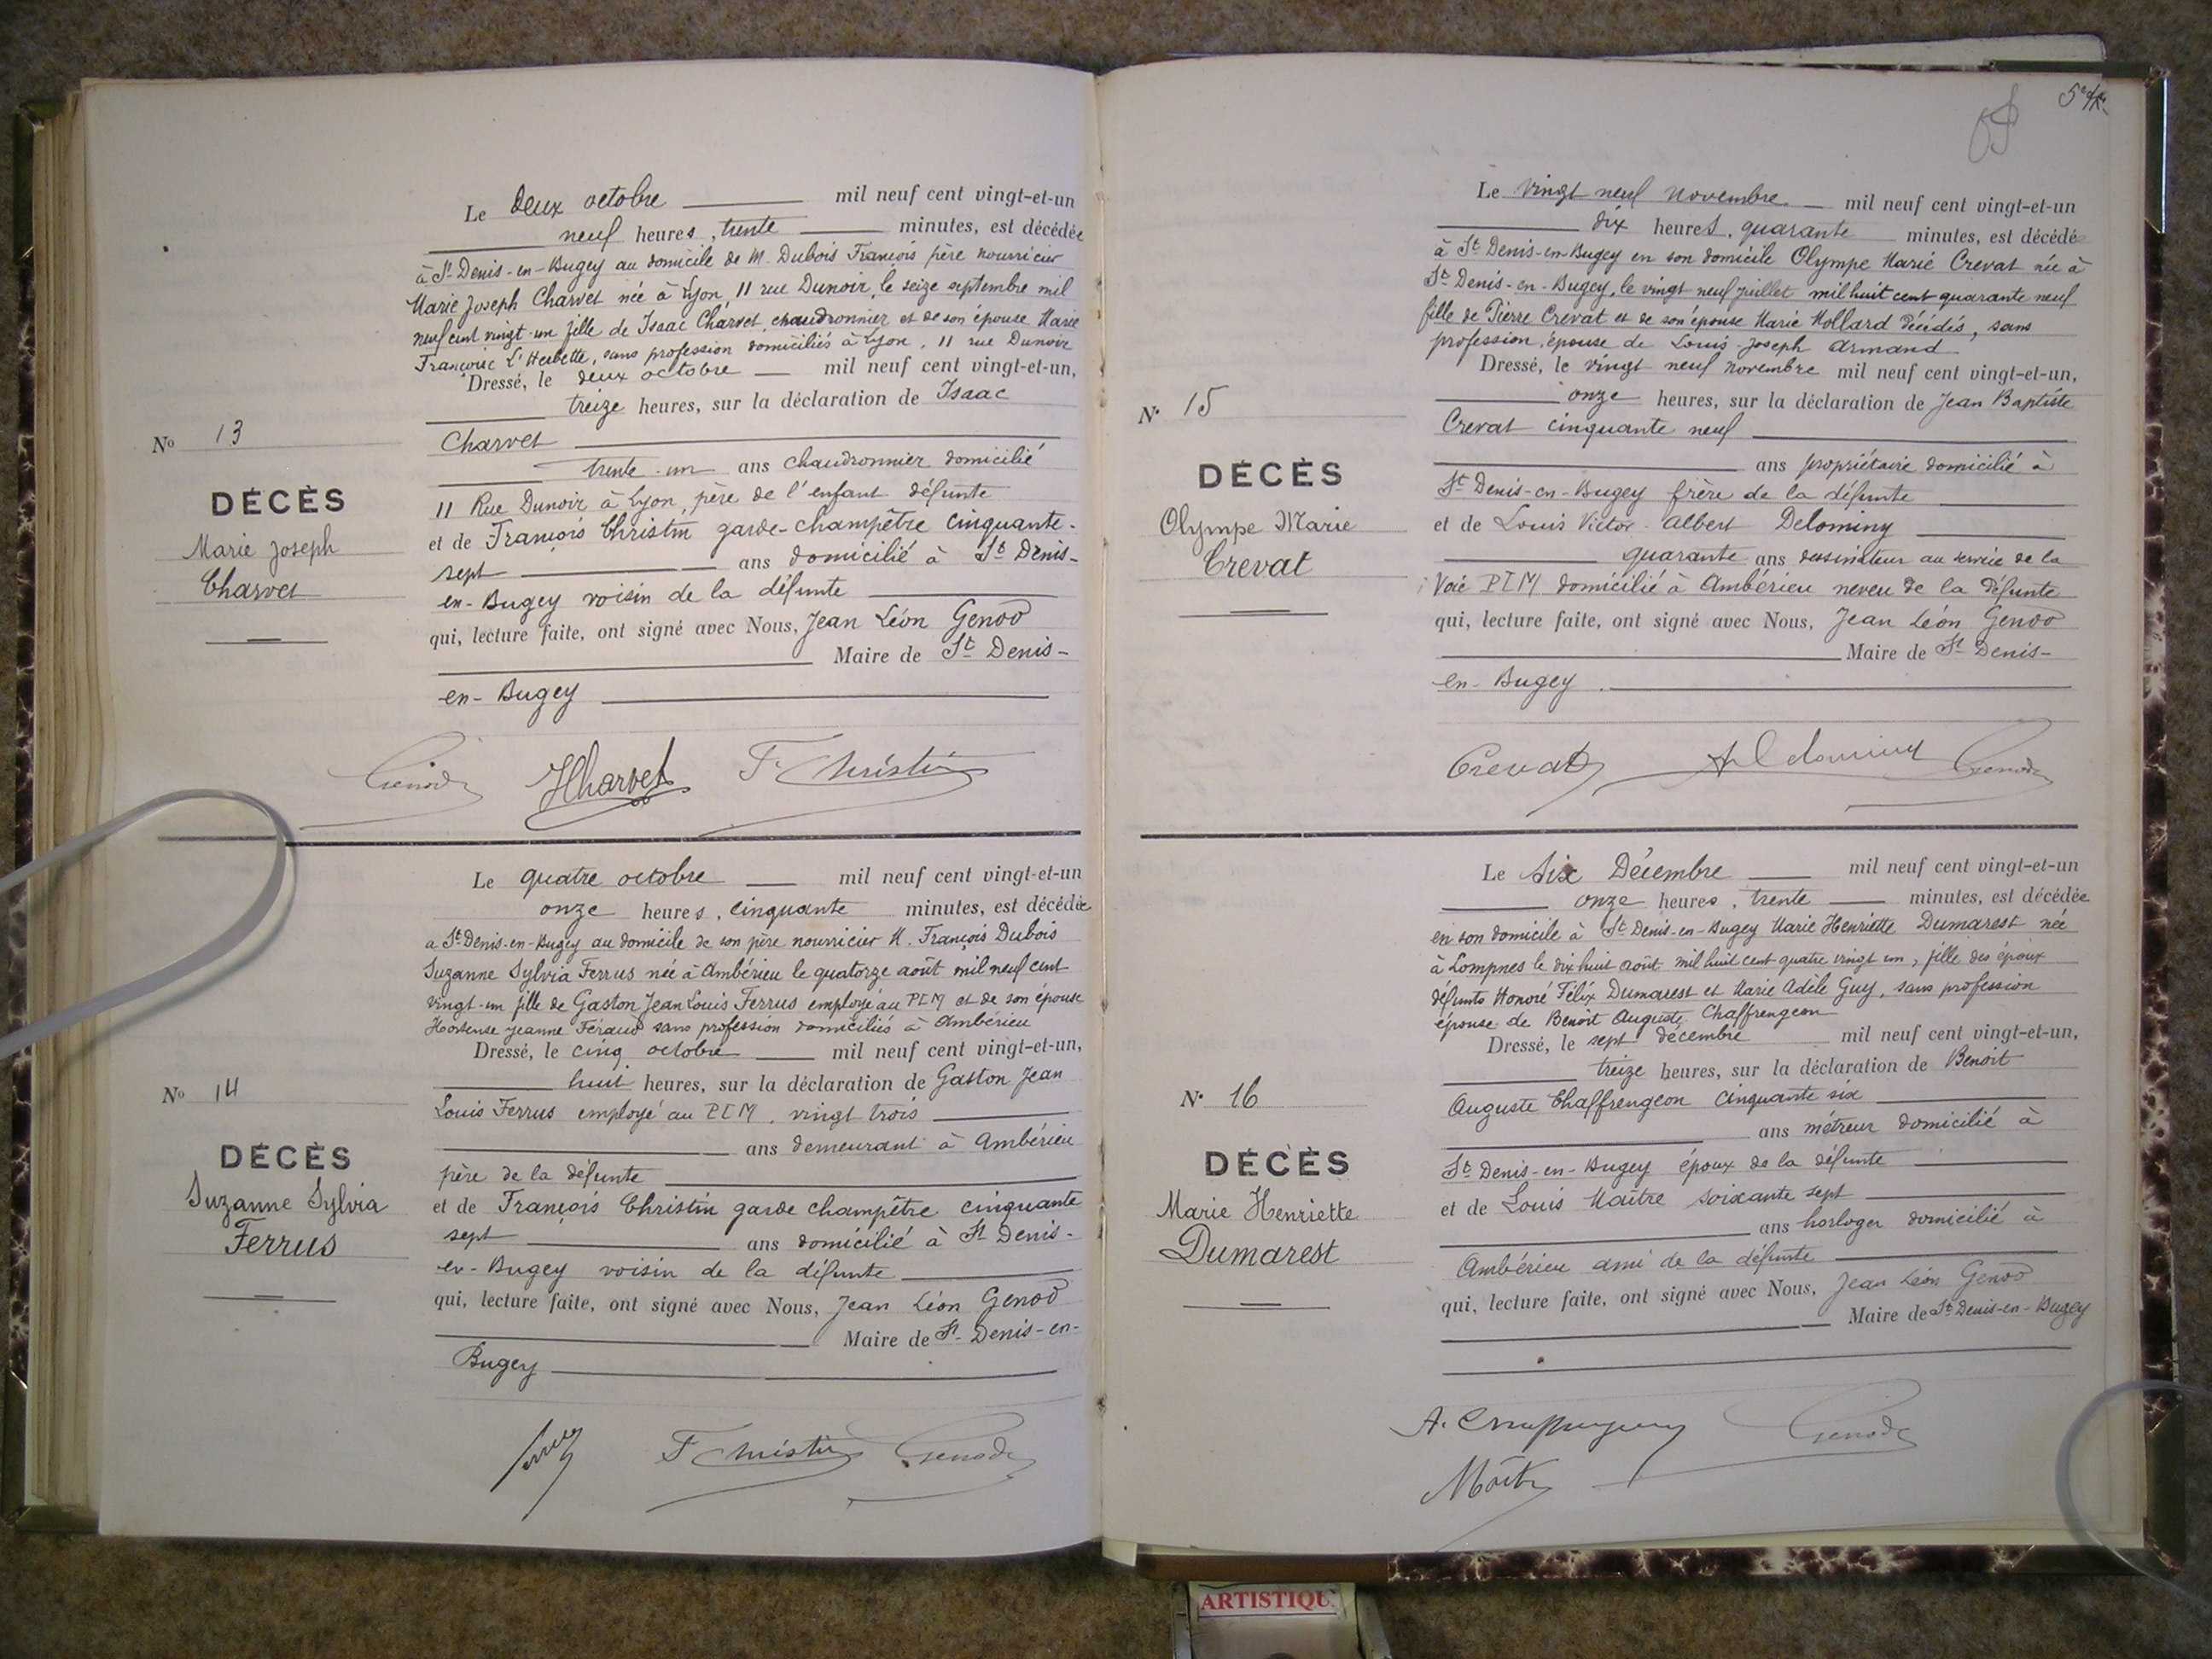 Le deux octobre mil neuf cent vingt-et-un
neuf heures, trente minutes, est décédée
à St Denis-en-Bugey au domicile de M. Dubois François père nourricier
Marie Joseph Charvet née à Lyon, 11 rue Dunoir, le seize septembre mil
neuf cent vingt-un fille de Isaac Charvet, chaudronnier et de son épouse Marie
Françoise L'Herbette, sans profession domiciliés à Lyon, 11 rue Dunoir
Dressé, le deux octobre mil neuf cent vingt-et-un,
treize heures, sur la déclaration de Isaac
Charvet
trente-un ans chaudronnier domicilié
11 Rue Dunoir à Lyon, père de l'enfant défunte
et de François Christin garde-champêtre cinquante-
sept ans domicilié à St Denis-
en-Bugey voisin de la défunte
qui, lecture faite, ont signé avec Nous, Jean Léon Genod
Maire de St Denis-
en-Bugey
No 13
DÉCÈS
Marie Joseph
Charvet
Genod Charvet F. Christin
Le quatre octobre mil neuf cent vingt-et-un
onze heures, cinquante minutes, est décédée
a St Denis-en-Bugey au domicile de son père nourricier M. François Dubois
Suzanne Sylvia Ferrus née à Ambérieu le quatorze août mil neuf cent
vingt-un fille de Gaston Jean Louis Ferrus employé au PLM et de son épouse
Hortense Jeanne Féraud sans profession domiciliés à Ambérieu
Dressé, le cinq octobre mil neuf cent vingt-et-un,
huit heures, sur la déclaration de Gaston Jean
Louis Ferrus employé au PLM, vingt trois
ans demeurant à Ambérieu
père de la défunte
et de François Christin garde champêtre cinquante
sept ans domicilié à St Denis-
en-Bugey voisin de la défunte
qui, lecture faite, ont signé avec Nous, Jean Léon Genod
Maire de St Denis-en-
Bugey
No 14
DÉCÈS
Suzanne Sylvia
Ferrus
F Christin Genod
Le vingt neuf novembre mil neuf cent vingt-et-un
dix heures, quarante minutes, est décédée
à St Denis-en-Bugey en son domicile Olympe Marie Crevat née à
St Denis-en-Bugey, le vingt neuf juillet mil huit cent quarante neuf
fille de Pierre Crevat et de son épouse Marie Mollard décédés, sans
profession, épouse de Louis-Joseph Armand
Dressé, le vingt neuf novembre mil neuf cent vingt-et-un,
onze heures, sur la déclaration de Jean Baptiste
Crevat cinquante neuf
ans propriétaire domicilié à
St Denis-en-Bugey frère de la défunte
et de Louis Victor Albert Delominy
quarante ans dessinateur au service de la
Voie PLM domicilié à Ambérieu neveu de la défunte
qui, lecture faite, ont signé avec Nous, Jean Léon Genod
Maire de St Denis-
en-Bugey
N° 15
DÉCÈS
Olympe Marie
Crevat
Crevat A Delominy Genod
Le Six Décembre mil neuf cent vingt-et-un
onze heures, trente minutes, est décédée
en son domicile à St Denis-en-Bugey Marie Henriette Dumarest née
à Lompnes le dix huit août mil huit cent quatre vingt un, fille des époux
défunts Honoré Félix Dumarest et Marie Adèle Guy, sans profession
épouse de Benoit Auguste Chaffrengeon
Dressé, le sept décembre mil neuf cent vingt-et-un,
treize heures, sur la déclaration de Benoit
Auguste Chaffrengeon cinquante six
ans métreur domicilié à
St Denis-en-Bugey époux de la défunte
et de Louis Maître soixante sept
ans horloger domicilié à
Ambérieu ami de la défunte
qui, lecture faite, ont signé avec Nous, Jean Léon Genod
Maire de St Denis-en-Bugey
N° 16
DÉCÈS
Marie Henriette
Dumarest
A. Chaffrengeon Genod
Maître
ARTISTIQU